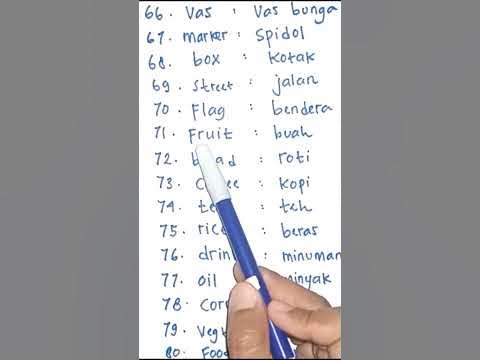 66. Vas : Vas bunga
67. marker: Spidol
68. box : Kotak
69. Street : jalan
70. Flag : bendera
71. Fruit : buah
72. : roti
73. : kopi
74. : teh
75. rice : beras
76. : minuman
77. oil : minyak
78.
79.
80. Food